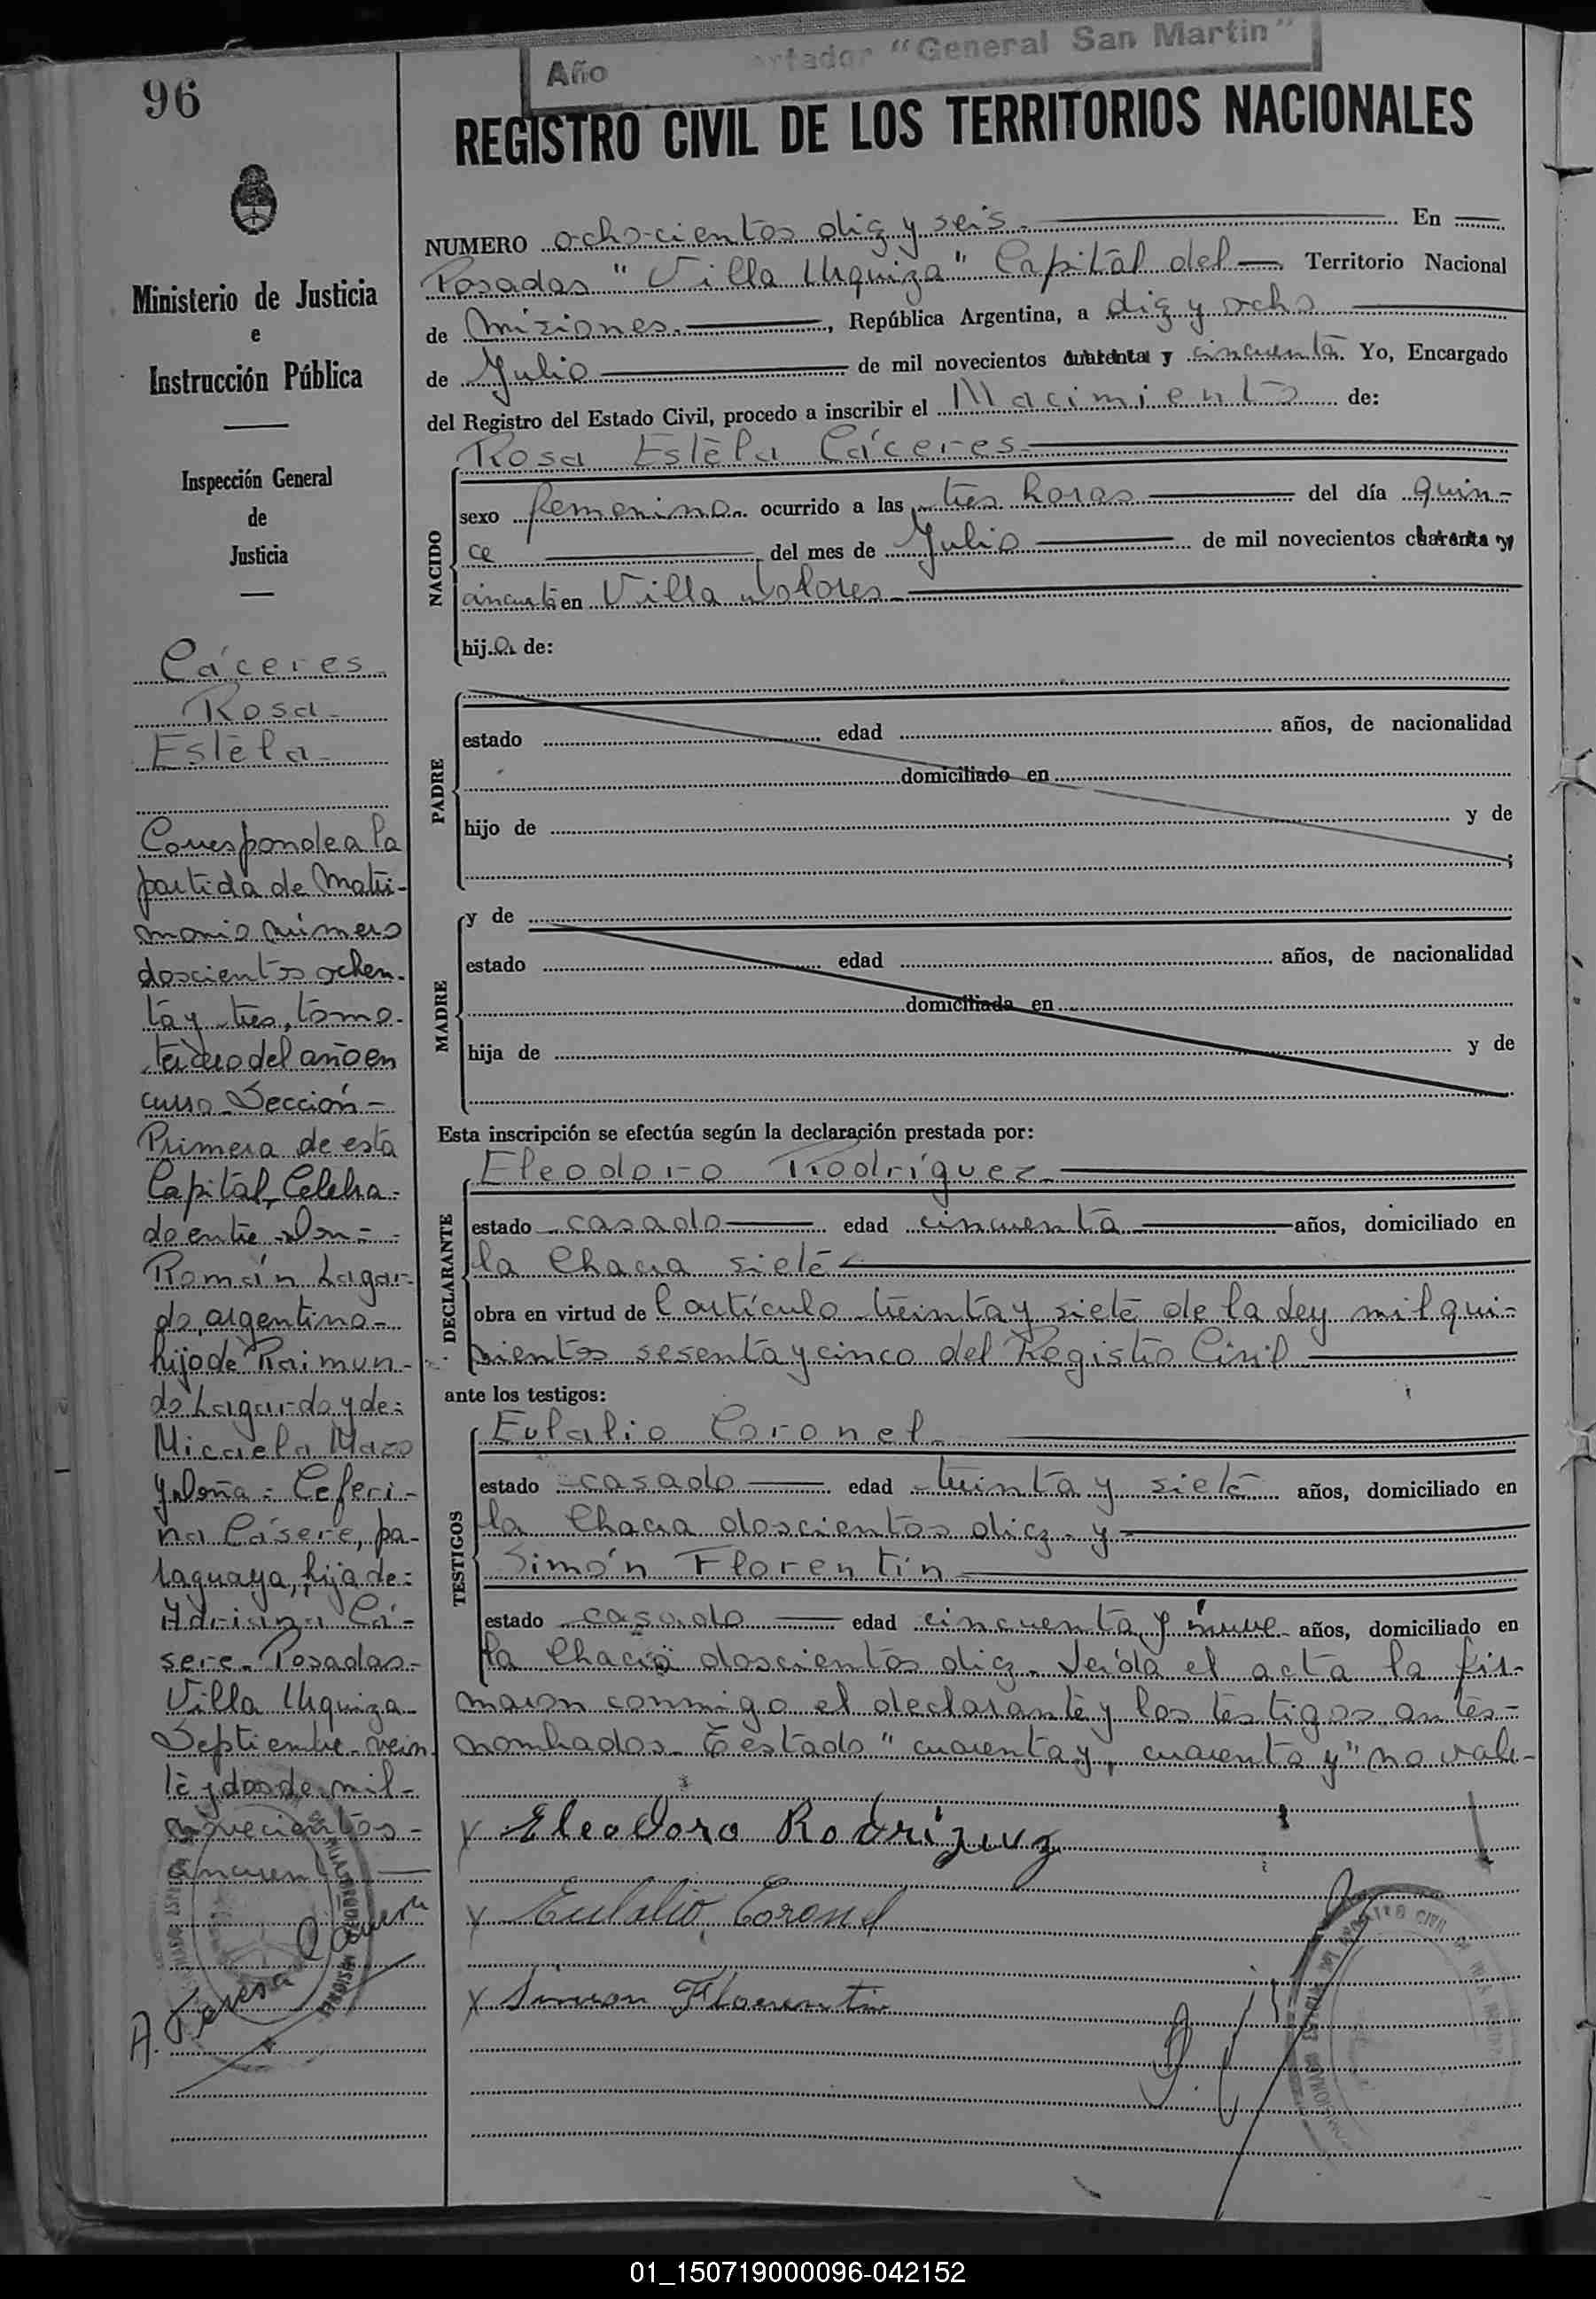 Año
ertador "General San Martin"
96
REGISTRO CIVIL DE LOS TERRITORIOS NACIONALES
Ministerio de Justicia
e
Instrucción Pública
Inspección General
de
Justicia
Cáceres
Rosa
Estèla
Corresponde a la
partida de Matri-
monio número
doscientos ochen-
ta y tres, tomo
tercero del año en
curso. Sección
Primera de esta
Capital, Celebra-
do entre Don =
Román Lagar-
do, argentino
hijo de Raimun-
do Lagardo y de:
Micaela
y Doña = Ceferi-
na Cásere, pa-
raguaya, hija de:
Adriana Cá-
sere. Posadas
Villa Urquiza
Septiembre vein
te y dos de mil
novecientos
cincuenta
NUMERO ochocientos diez y seis. En
Posadas "Villa Urquiza" Capital del Territorio Nacional
de Misiones., República Argentina, a diez y ocho
de Julio de mil novecientos cuarenta y cincuenta. Yo, Encargado
del Registro del Estado Civil, procedo a inscribir el Nacimiento de:
Rosa Estèla Cáceres
NACIDO
sexo femenino. ocurrido a las tres horas del día quin-
ce del mes de Julio de mil novecientos cuarenta y
cincuenta en Villa Dolores
hija de:
PADRE
estado edad años, de nacionalidad
domiciliado en
hijo de y de
;
MADRE
y de
estado edad años, de nacionalidad
domiciliada en
hija de y de
Esta inscripción se efectúa según la declaración prestada por:
DECLARANTE
Eleodoro Rodríguez
estado casado edad cincuenta años, domiciliado en
la Chacra siete
obra en virtud de l artículo treinta y siete de la Ley mil qui-
nientos sesenta y cinco del Registro Civil
ante los testigos:
TESTIGOS
Eulalio Coronel
estado casado edad treinta y siete años, domiciliado en
la Chacra doscientos diez y
Simón Florentín
estado casado edad cincuenta y nueve años, domiciliado en
la Chacra doscientos diez. Leída el acta la fir-
maron conmigo el declarante y los testigos antes
nombrados. Testado "cuarenta y, cuarenta y" no vale
x Eleodoro Rodríguez
x Eulalio Coronel
x Simon Florentin
A. Teresa
01_150719000096-042152